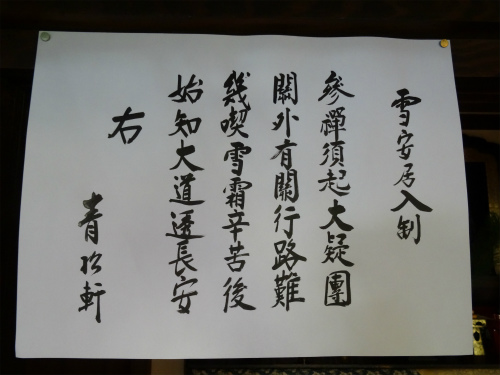 雪安居入制
參禪須起大疑團
關外有關行路難
幾喫雪霜辛苦後
始知大道透長安
右
青松軒